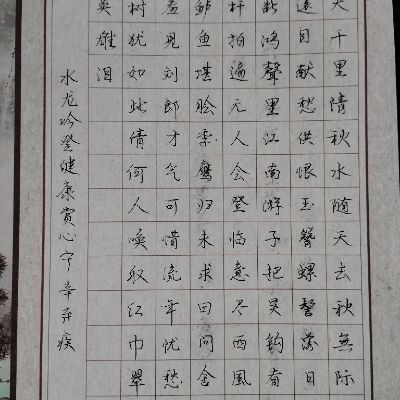 天千里清秋水随天去秋無际
遠目献愁供恨玉簪螺髻落日
断鸿聲里江南游子把吴鈎看
杆拍遍无人会登临意尽西風
鲈鱼堪脍季鹰归未求田问舍
羞見刘郎才气可惜流年忧愁
树犹如此倩何人唤取红巾翠
英雄泪
水龙吟登健康賞心亭辛弃疾